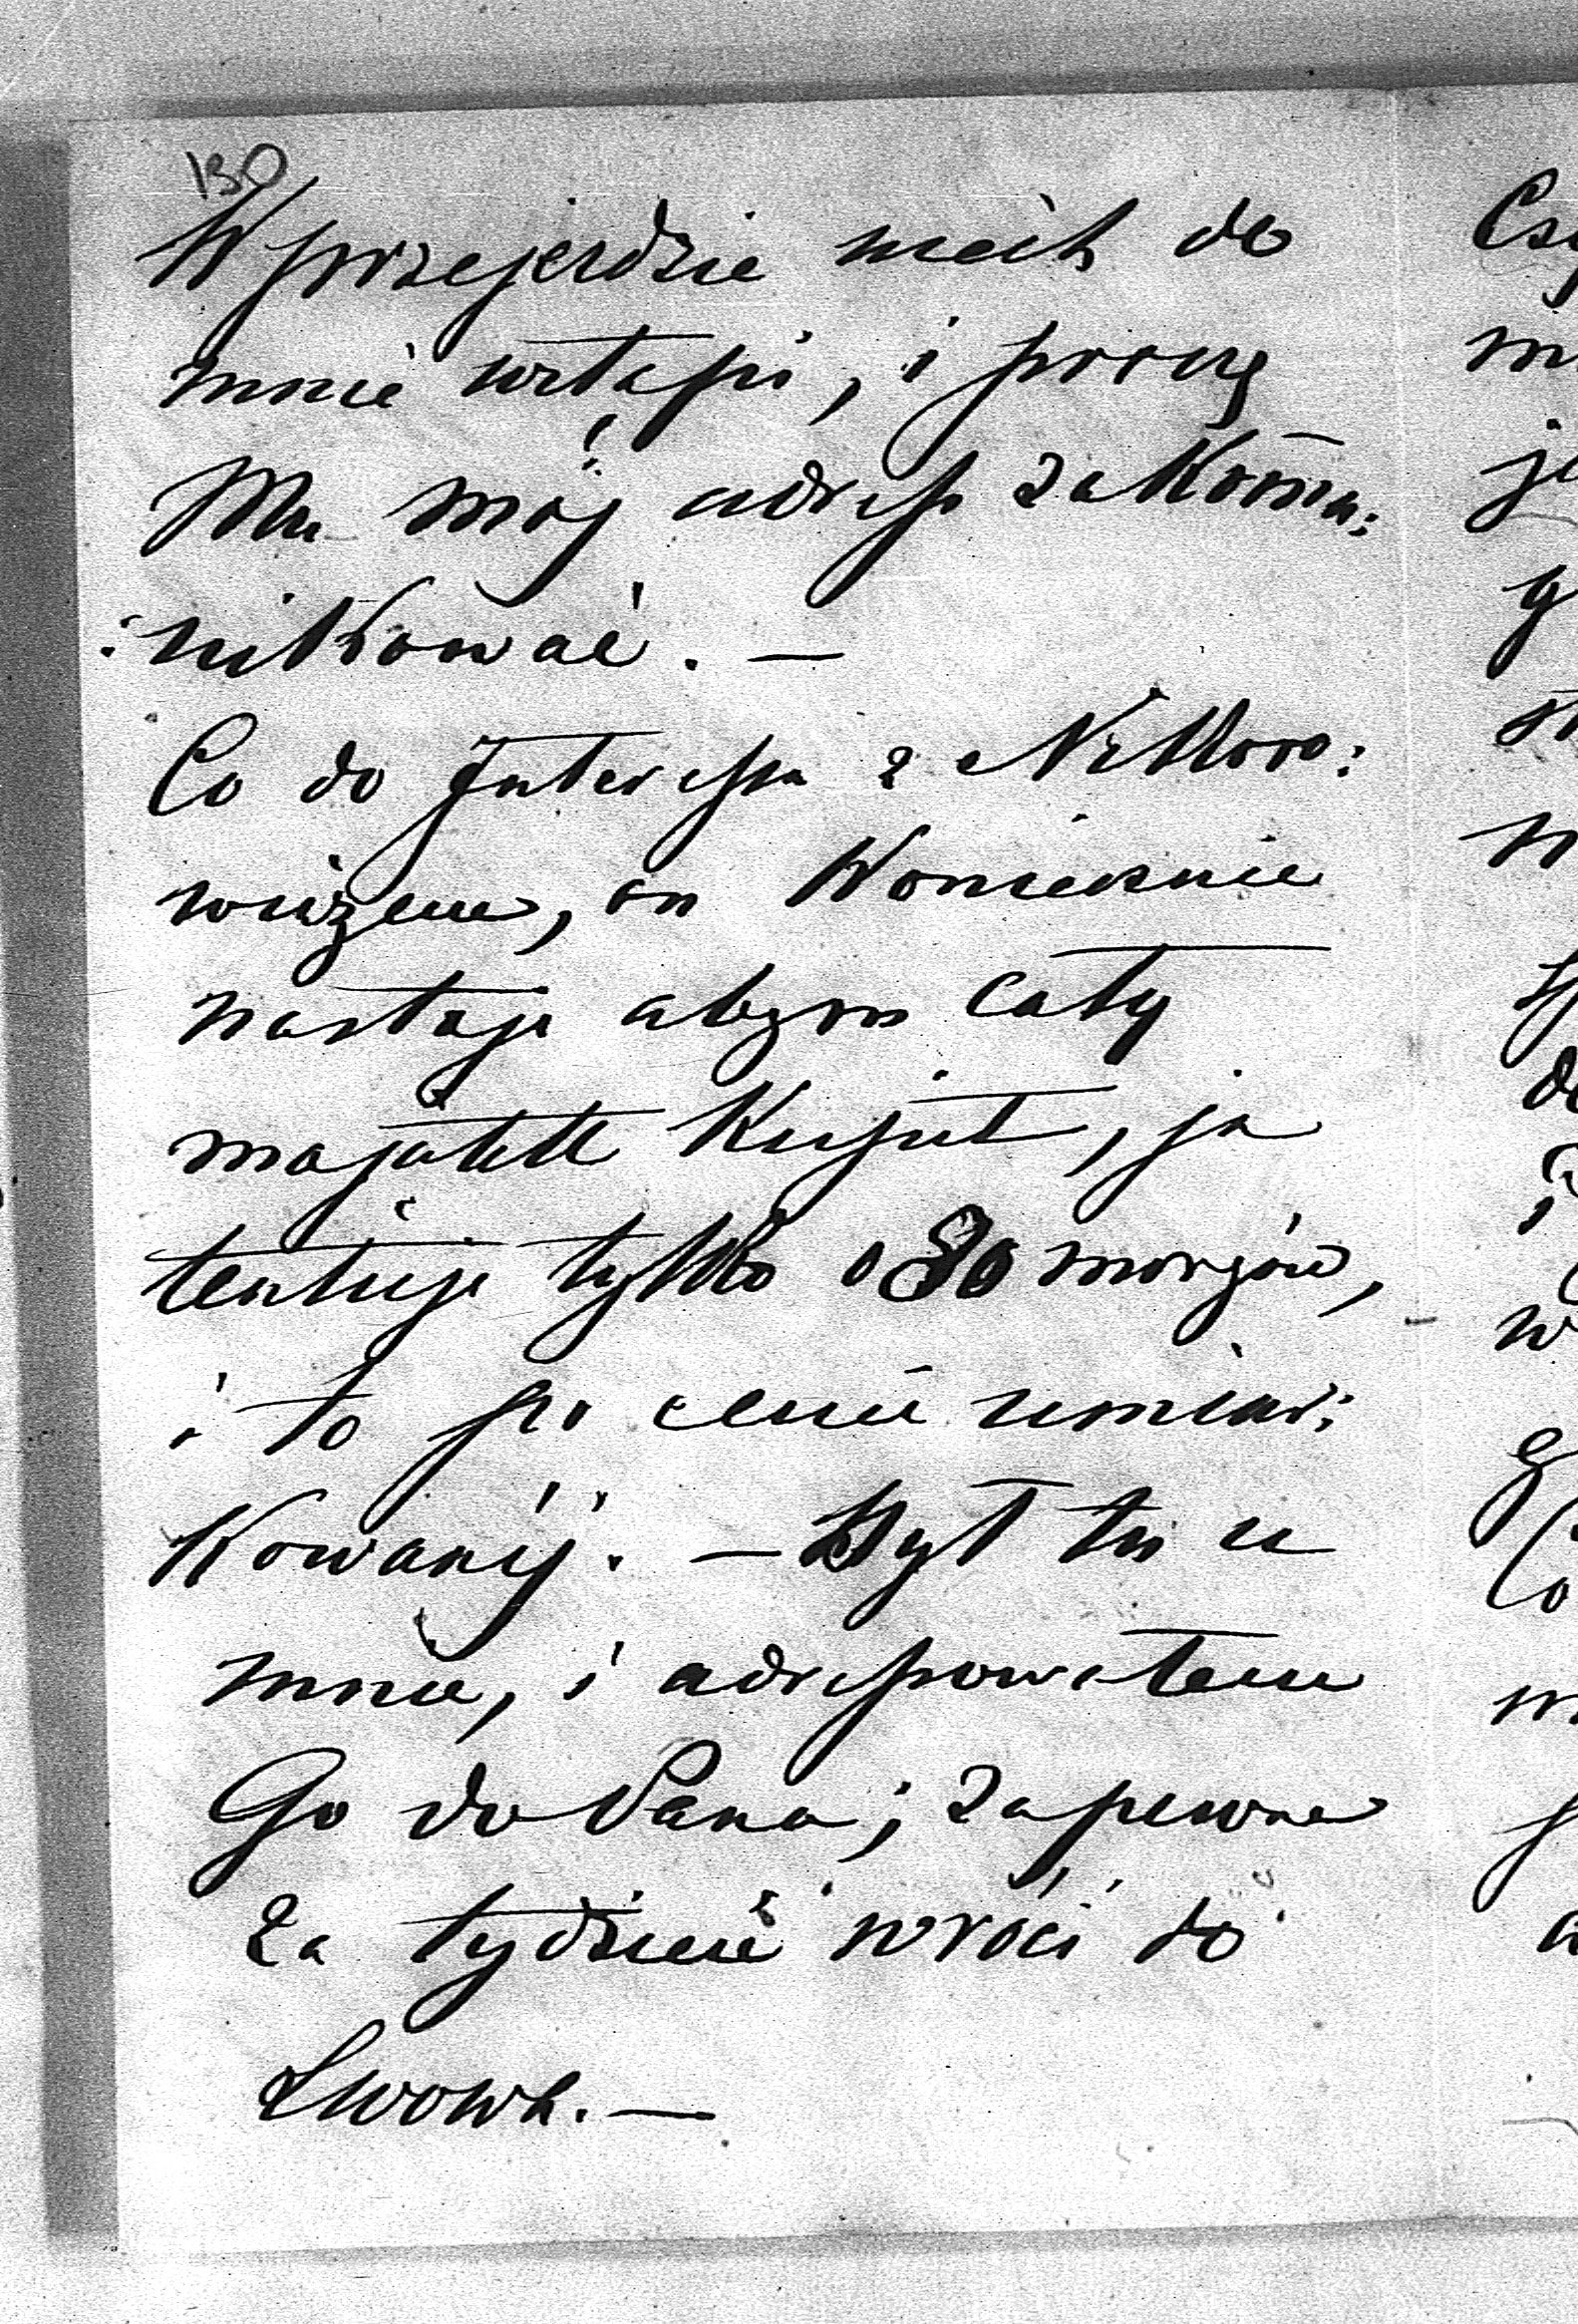 130
W przejezdzie niech do
mnie wstąpi, i proszę
Mu mój adress zakomu:
:nikować. —
Co do Interessu z
wiczem, on koniecznie
nastaje abym cały
majątek kupił, ja
tentuję tylko o 30 morgów,
i to po cenie umiar:
kowanéj. — Był tu u
mnie, i adressowałem
Go do Pana; zapewne
za tydzień wróci do
Lwowa. —